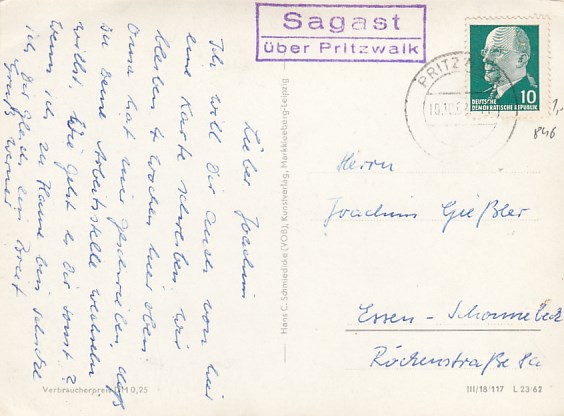 Sagast
über Pritzwalk
PRITZWALK
DEUTSCHE
DEMOKRATISCHE REPUBLIK
10
1,-
846
Lieber Joachim
Ich will Dir auch von hier
eine Karte schreiben. Wir
bleiben 4 Wochen hier oben.
Oma hat mir geschrieben, daß
Du Deine Arbeitsstelle wechseln
willst. Wie geht es Dir sonst?
Wenn ich zu Hause bin schreibe
ich Dir gleich den Brief
Gruß Werner
Verbraucherpreis DM 0,25
Hans C. Schmiedicke (VOB), Kunstverlag, Markkleeberg-Leipzig
Herrn
Joachim Gießler
Essen-Schonnebeck
Röckenstraße 8a
III/18/117 L 23/62